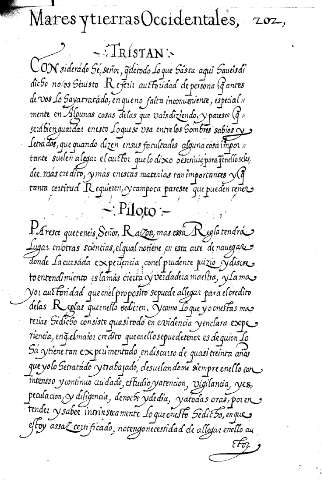 Mares y tierras Occidentales, 202,
TRISTAN
CONsiderado hé, señor, que de todo lo que hasta aqui haueis di
dicho no os he uisto Referir authoridad de persona que antes
de vos lo haya tractado, en que no falta inconueniente, especial
mente en Algunas cosas delas que vais diziendo, y parese que
letrados, que quando dizen en sus facultades alguna cosa impor
tante suelen allegar el auctor que lo dixo
dé mas credito, y mas en estas materias tan importantes y que
tanta certitud Requieren, y tampoco parese que pueden tener
Piloto
PAresce que teneis, Señor, Razon, mas essa Regla tendrá
lugar en otras sciencias, el qual no tiene en esta arte de nauegar
donde la cursada experiencia con el prudente juizio y discre
to entendimiento es la mas cierta y verdadera maestra, y la ma
yor authoridad que en el proposito se puede allegar para el credito
delas Reglas que en ello se dizen, y como lo que yo en estas ma
terias he dicho consiste quasi todo en euidencia y en clara expe
riencia, en el maior credito que en ello se puede tener es de quien lo
há y tiene tan experimentado en discurso de quasi treinta años
que yo lo he tratado y trabajado, desuelandome siempre en ello con
intenso y continuo cuidado, estudio y atencion, vigilancia, y es
peculacion, y diligencia, de noche y de dia, y a todas oras, por en
tender y saber intrinsicamente lo que en esto he dicho, en que
estoy assaz certificado, no tengo necessidad de allegar en ello au
ctor